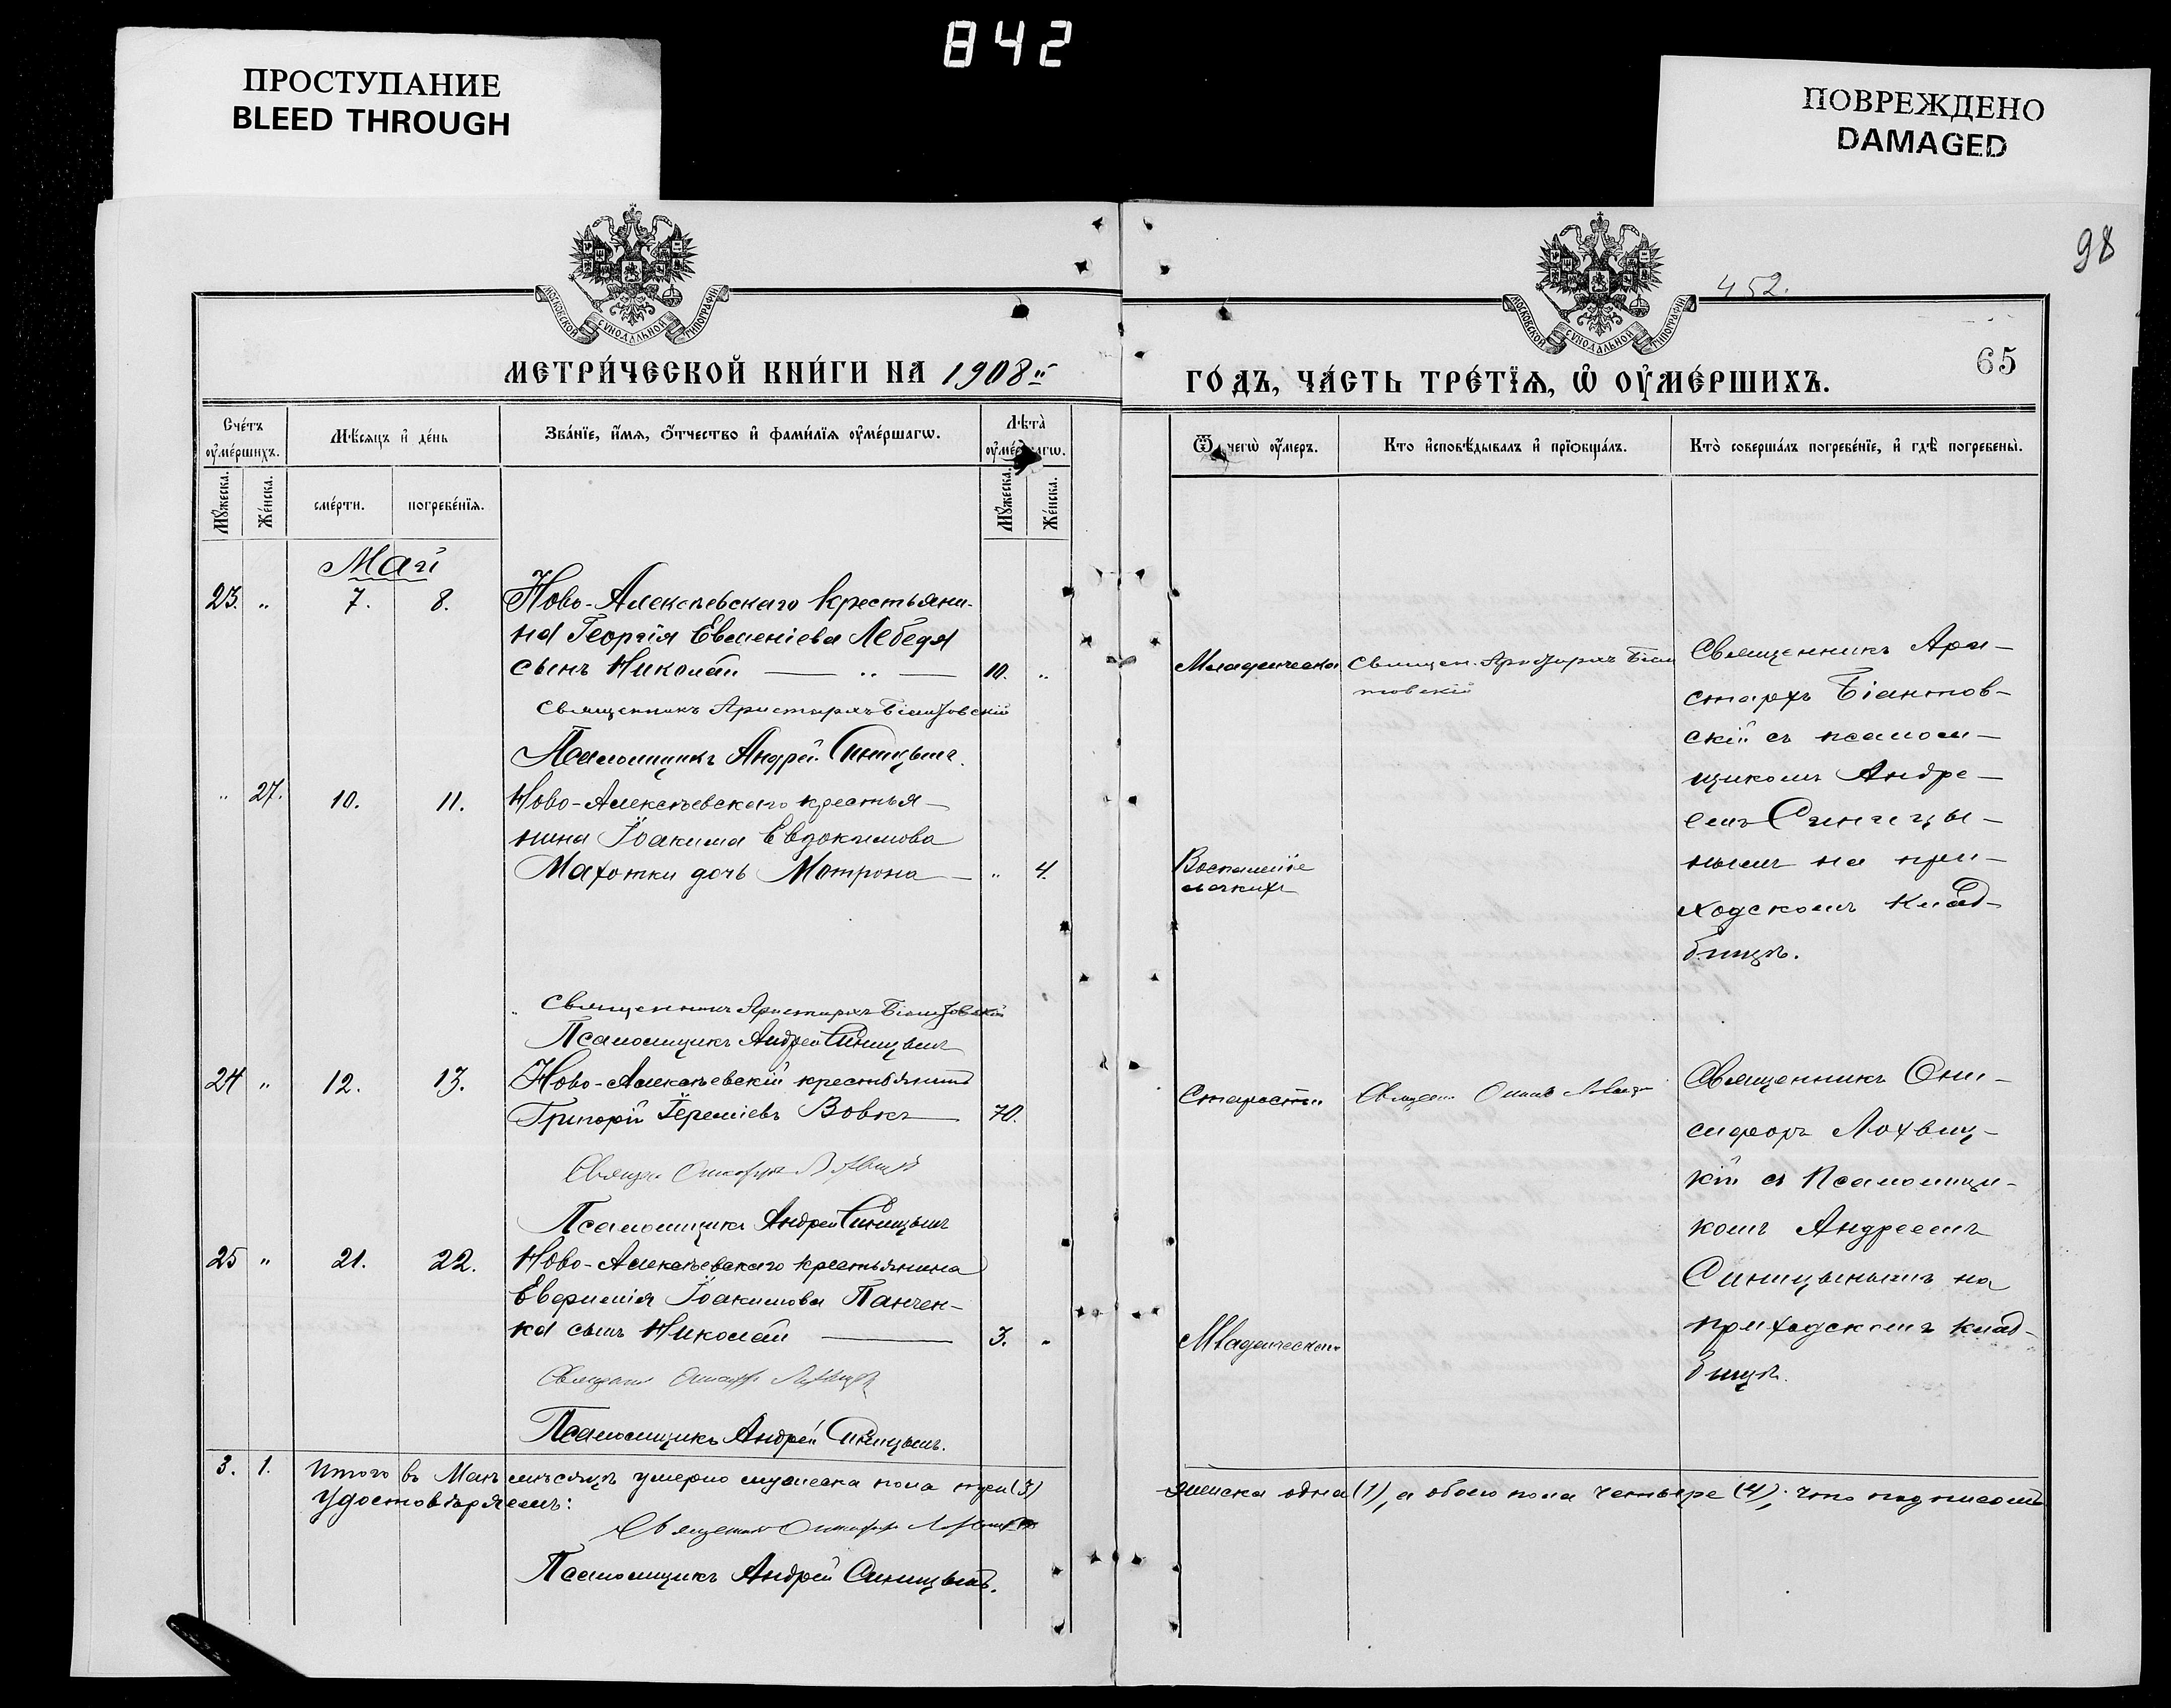 842
ПРОСТУПАНИЕ
BLEED THROUGH
ПОВРЕЖДЕНО
DAMAGED
98
452.
МОСКОВСКОЙ СѴНОДАЛЬНОЙ ТИПОГРАФІИ
МОСКОВСКОЙ СѴНОДАЛЬНОЙ ТИПОГРАФІИ
65
МЕТРИ́ЧЕСКОЙ КНИ́ГИ НА 1908й
ГО́ДЪ, ЧА́СТЬ ТРЕ́ТЇѦ, Ѽ ОУ҆МЕ́РШИХЪ.
Сче́тъ оу҆ме́ршихъ.
Мѣ́сѧцъ и҆ де́нь
Зва́нїе, и҆́мѧ, ѻ҆́тчество и҆ фами́лїѧ оу҆ме́ршагѡ.
Лѣ̀та оу҆ме́ршагѡ.
Ѿ чегѡ̀ оу҆́меръ.
Кто и҆сповѣ́дывалъ и҆ прїѡбща́лъ.
Кто̀ соверша́лъ погребе́нїе, и҆ гдѣ̀ погребены̀.
Мꙋ́жеска.
Же́нска.
сме́рти.
погребе́нїѧ.
Мꙋ́жеска.
Же́нска.
Май
23. " 7. 8. Ново-Алексѣевскаго крестьяни-
на Георгія Евменіева Лебедя
сынъ Николай — " — 10. "
Священникъ Аристархъ Біантовскій
Псаломщикъ Андрей Синицынъ.
Младенческая
Священ. Аристархъ Біан
товскій
Священникъ Ари-
стархъ Біантов-
скій съ псалом-
щикомъ Андре-
емъ Синицы-
нымъ на при-
ходскомъ клад-
бищѣ.
" 27. 10. 11. Ново-Алексѣевскаго крестья-
нина Іоакима Евдокимова
Махотки дочь Мотрона — " 4.
Воспаленіе
легкихъ
Священникъ Аристархъ Біантовскій
Псаломщикъ Андрей Синицынъ
24 " 12. 13. Ново-Алексѣевскій крестьянинъ
Григорій Іереміевъ Вовкъ — 70.
Священ. Онисифоръ Лохвиц
Псаломщикъ Андрей Синицынъ
Старости
Священ. Онис Лохвиц
Священникъ Они-
сифоръ Лохвиц-
кій съ Псаломщи-
комъ Андреемъ
Синицынымъ на
приходскомъ клад-
бищѣ.
25 " 21. 22. Ново-Алексѣевскаго крестьянина
Евфимія Іоакимова Панчен-
ка сынъ Николай — 3. "
Младенческая
Священ Онисифоръ Лохвицк
Псаломщикъ Андрей Синицынъ.
3. 1. Итого въ Маѣ мѣсяцѣ умерло мужеска пола три (3)
женска одна (1), а обоего пола четыре (4), что подписомъ
удостовѣряемъ:
Священникъ Онисифоръ Лохвицкій
Псаломщикъ Андрей Синицынъ.